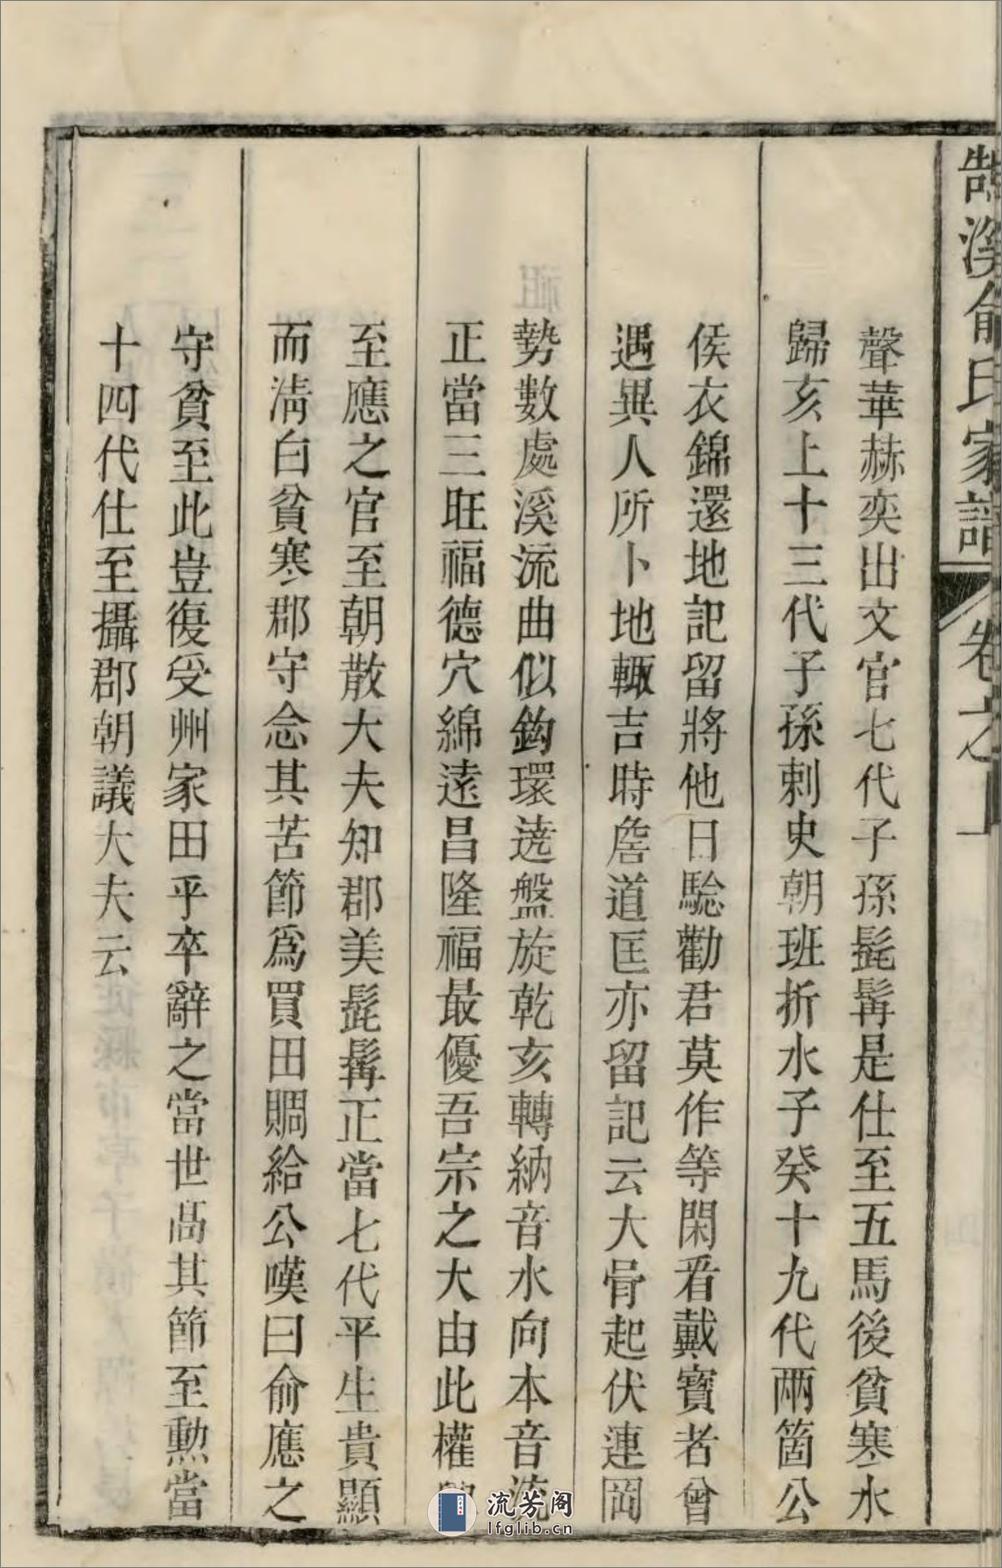 溪俞氏家譜 卷之
聲華赫奕出文官七代子孫髭髯是仕至五馬後貧寒水
歸亥上十三代子孫刺史朝班折水子癸十九代兩箇公
侯衣錦還地記留將他日驗勸君莫作等閑看戴寶者曾
遇異人所卜地輙吉時詹道匡亦留記云大骨起伏連岡
勢數處溪流曲似鈎環遶盤旋乾亥轉納音水向本音流
正當三旺福德穴綿遠昌隆福最優吾宗之大由此權
至應之官至朝散大夫知郡美髭髯正當七代平生貴顯
而淸白貧寒郡守念其苦節爲買田賙給公嘆曰俞應之
守貧至此豈復受州家田乎卒辭之當世髙其節至勲當
十四代仕至攝郡朝議大夫云
流芳阁
lfglib.cn